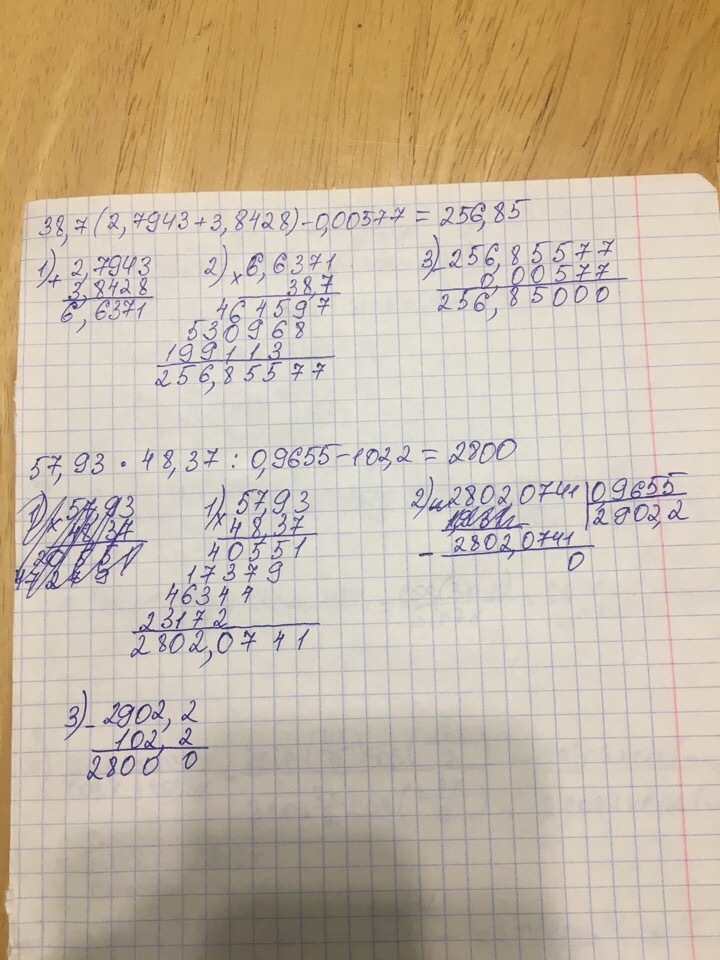 38,7(2,7943+3,8428)-0,00577=256,85
1) + 2,7943
3,8428
6,6371
2) × 6,6371
38,7
464597
530968
199113
256,85577
3) - 256,85577
0,00577
256,85000
57,93 · 48,37 : 0,9655-102,2 = 2800
1) × 57,93
48,37
1) × 57,93
48,37
40551
17379
46344
23172
2802,0741
2) 2802,0741 | 0,9655
2902,2
- 2802,0741
0
3) - 2902,2
102,2
2800 0